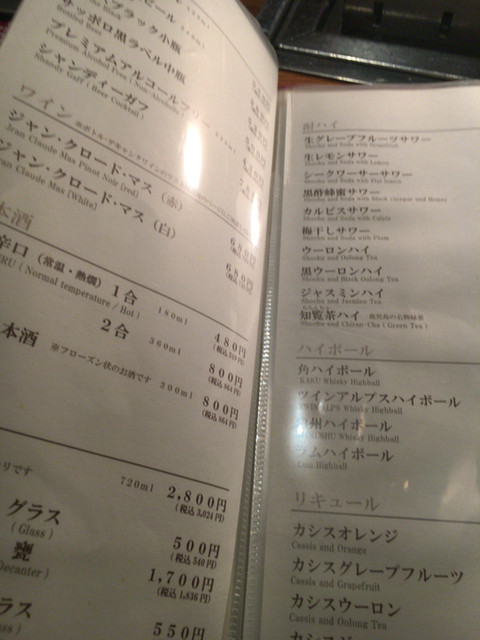 ブラック小瓶
サッポロ黒ラベル中瓶
プレミアムアルコールフリー
Premium Alcohol Free (Non-Alcoholic)
シャンディーガフ
Shandy Gaff (Beer Cocktail)
ワイン
ジャン・クロード・マス（赤）
Jean Claude Mas Pinot Noir [red]
680円
ジャン・クロード・マス（白）
Jean Claude Mas [White]
680円
本酒
辛口（常温・熱燗）1合 180ml 480円
(Normal temperature / Hot)
2合 360ml 800円
(税込864円)
本酒 ※フローズン状のお酒です 300ml 800円
(税込864円)
りです
720ml 2,800円
(税込3,024円)
グラス 500円
(Glass) (税込540円)
甕 1,700円
Decanter) (税込1,836円)
ラス 550円
酎ハイ
生グレープフルーツサワー
Shochu and Soda with Grapefruit
生レモンサワー
Shochu and Soda with Lemon
シークワーサーサワー
Shochu and Soda with Flat lemon
黒酢蜂蜜サワー
Shochu and Soda with Black vinegar and Honey
カルピスサワー
Shochu and Soda with Calpis
梅干しサワー
Shochu and Soda with Plum
ウーロンハイ
Shochu and Oolong Tea
黒ウーロンハイ
Shochu and Black Oolong Tea
ジャスミンハイ
Shochu and Jasmine Tea
知覧茶ハイ 鹿児島の名物緑茶
Shochu and Chiran-Cha (Green Tea)
ハイボール
角ハイボール
KAKU Whisky Highball
ツインアルプスハイボール
TWIN ALPS Whisky Highball
州ハイボール
Whisky Highball
ラムハイボール
Highball
リキュール
カシスオレンジ
Cassis and Orange
カシスグレープフルーツ
Cassis and Grapefruit
カシスウーロン
Cassis and Oolong Tea